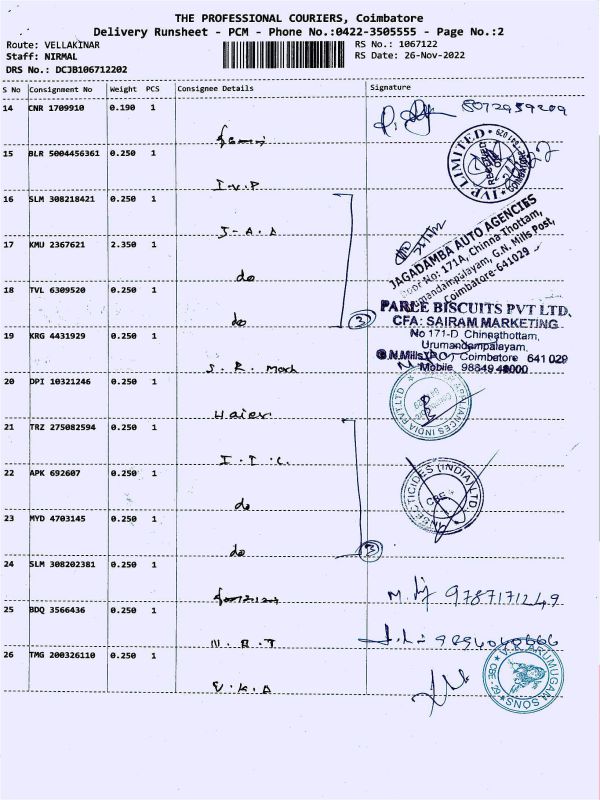 THE PROFESSIONAL COURIERS, Coimbatore
Delivery Runsheet - PCM - Phone No.:0422-3505555 - Page No.:2
Route: VELLAKINAR
RS No.: 1067122
Staff: NIRMAL
RS Date: 26-Nov-2022
DRS No.: DCJB106712202
S No Consignment No Weight PCS Consignee Details Signature
14 CNR 1709910 0.190 1
15 BLR 5004456361 0.250 1
I.V.P
IVP LIMITED
RECEIVED
16 SLM 308218421 0.250 1
J-A.A
17 KMU 2367621 2.350 1
do
JAGADAMBA AUTO AGENCIES
Door No: 171A, Chinna Thottam,
Urumandampalayam, G.N. Mills Post,
Coimbatore-641029
18 TVL 6309520 0.250 1
do
3
PARLE BISCUITS PVT LTD.
CFA: SAIRAM MARKETING
No 171-D Chinnathottam,
Urumandampalayam,
G.N.Mills(PO) Coimbatore 641 029
Mobile
19 KRG 4431929 0.250 1
S. R. Mach
20 DPI 10321246 0.250 1
Haier
APPLIANCES INDIA PVT LTD
21 TRZ 275082594 0.250 1
I.T.C.
22 APK 692607 0.250 1
do
INSECTICIDES (INDIA) LTD.
CBE
23 MYD 4703145 0.250 1
do
3
24 SLM 308202381 0.250 1
9787171249
25 BDQ 3566436 0.250 1
N.R.T
26 TMG 200326110 0.250 1
V.K.A
V.K. ARUMUGAM SONS
CBE - 29